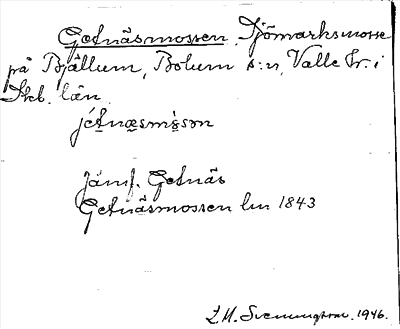 Getnäsmossen. Sjömarksmosse
på Bjällum, Bolum s:n, Valle hr. i
Skb. län.
jetnæsmósən
Jämf. Getnäs
Getnäsmossen lm 1843
1946.